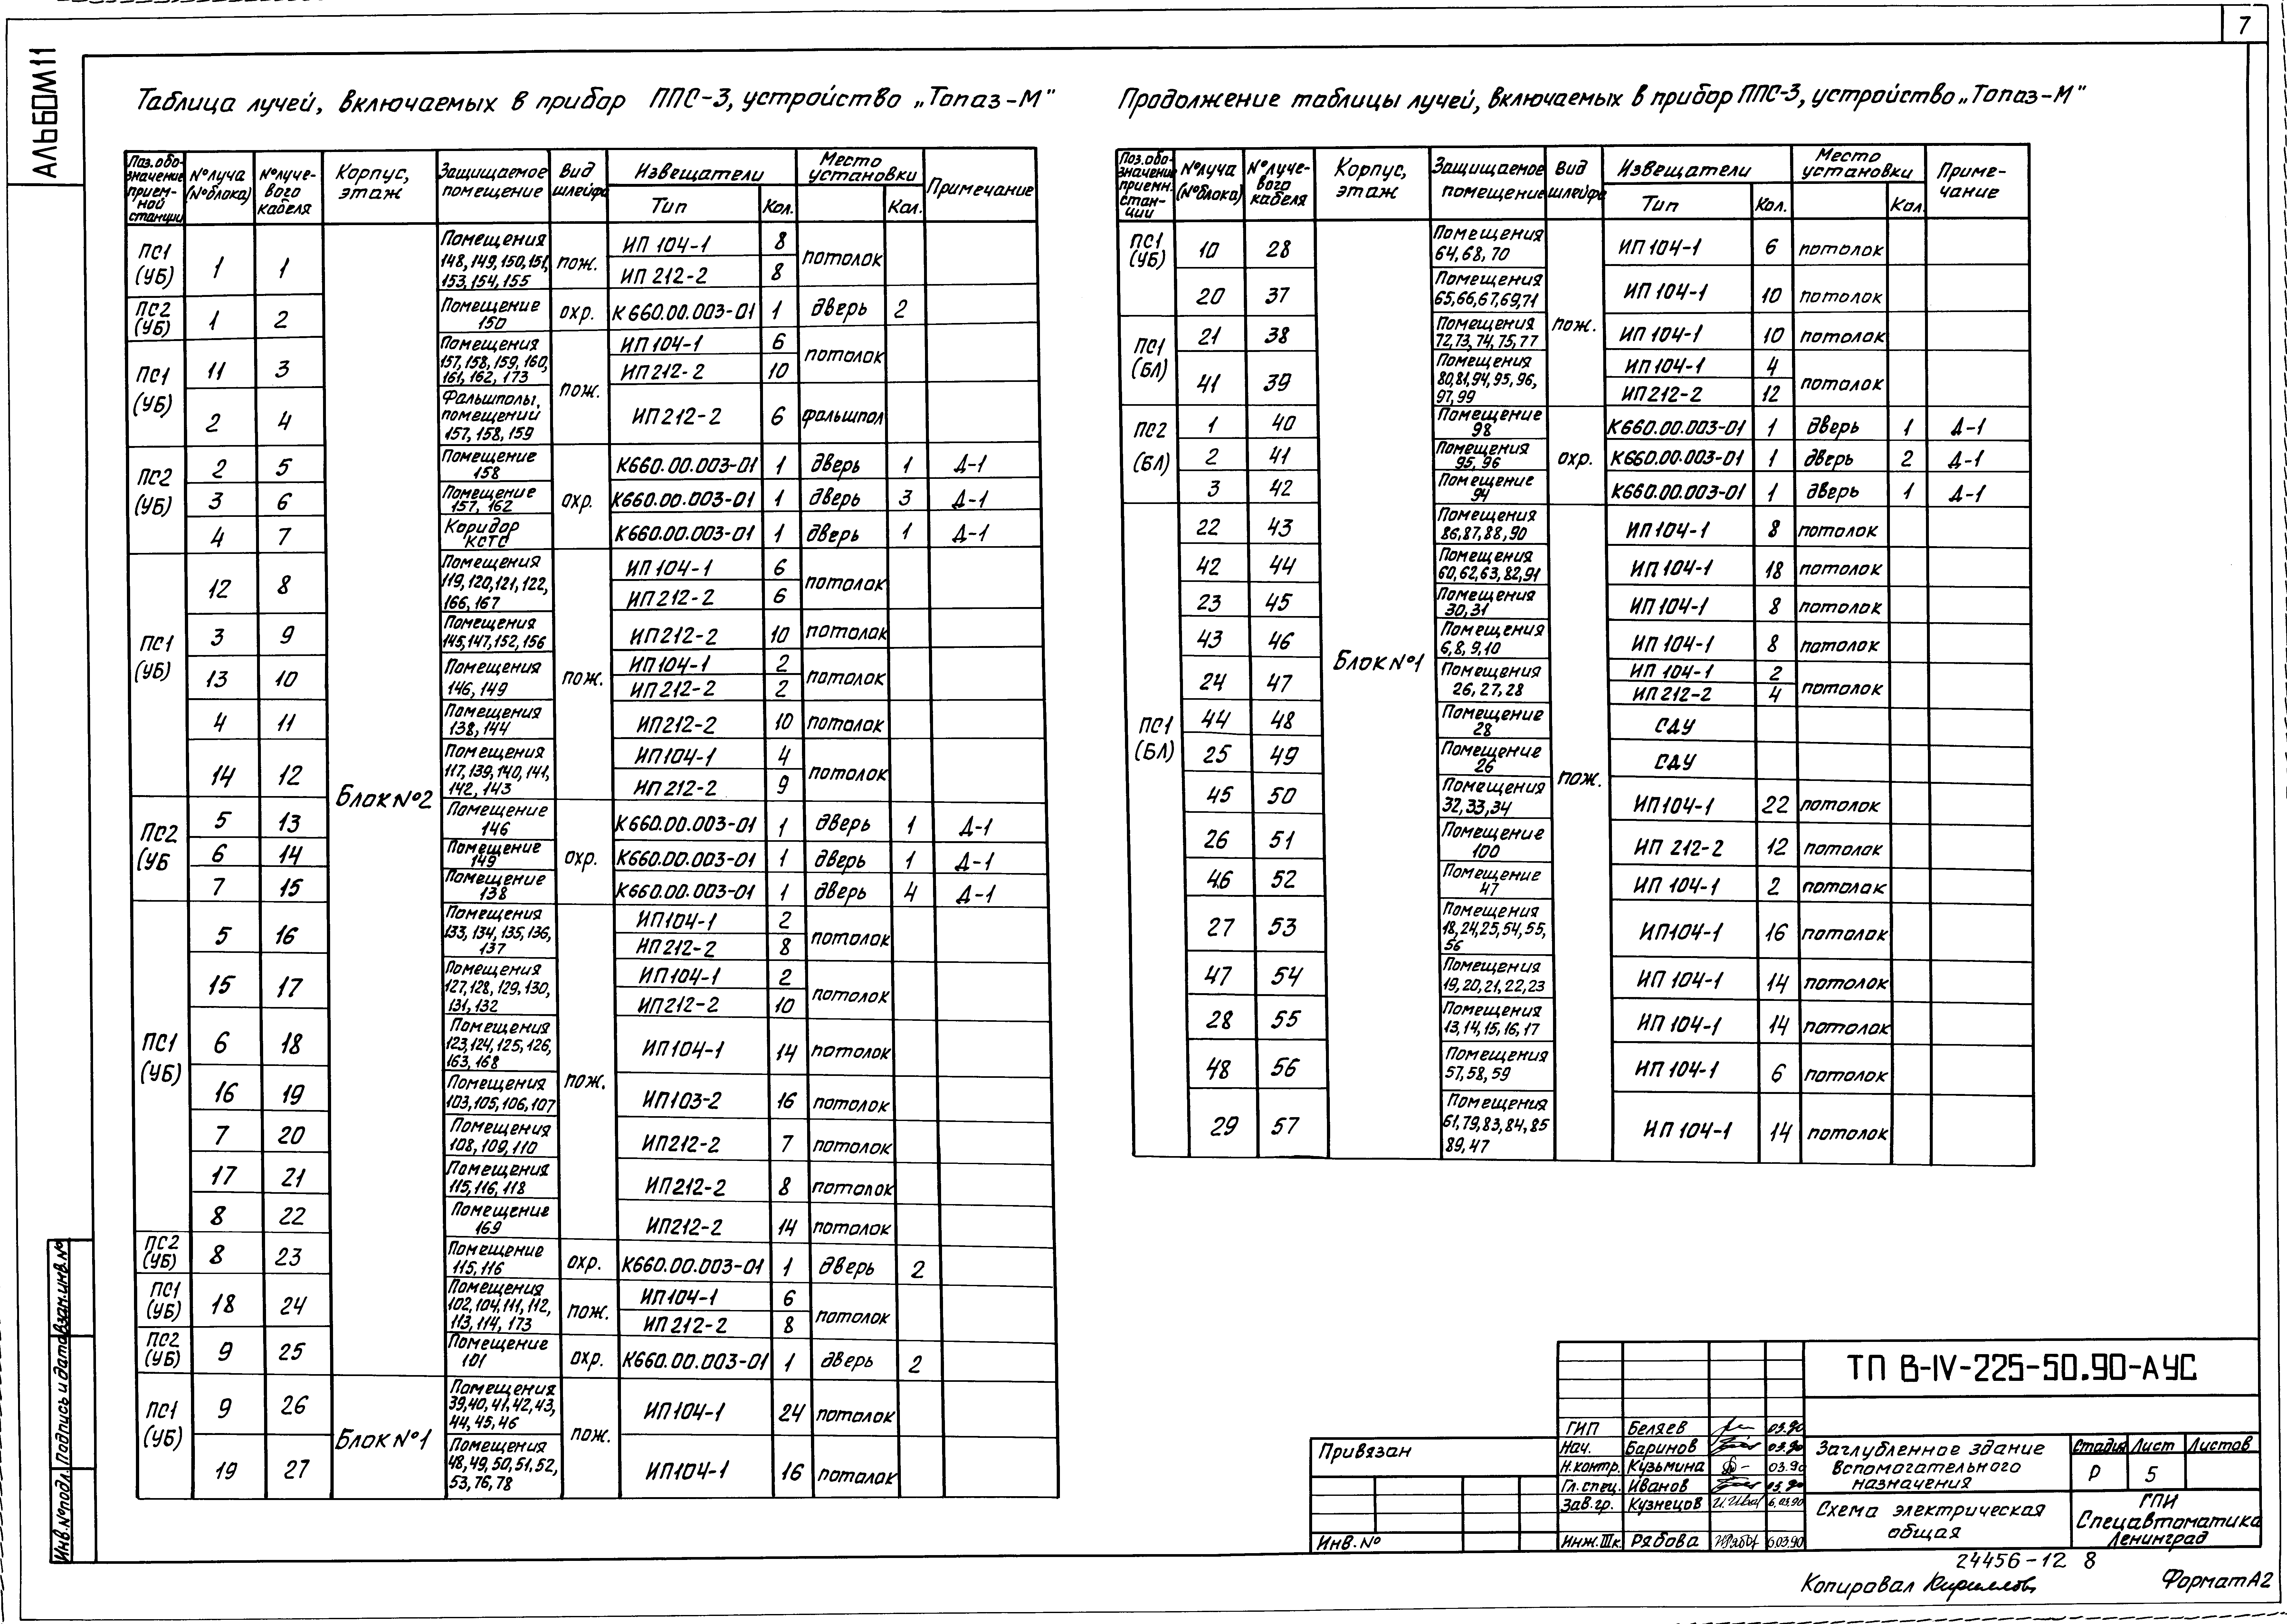 7
АЛЬБОМ 11
Таблица лучей, включаемых в прибор ППС-3, устройство „Топаз-М"
Поз. обозначение приемной станции | № луча (№ блока) | № лучевого кабеля | Корпус, этаж | Защищаемое помещение | Вид шлейфа | Извещатели Тип | Кол. | Место установки | Кол. | Примечание
ПС1 (УБ) 1 1 Блок №2 Помещения 148, 149, 150, 151, 153, 154, 155 пож. ИП 104-1 8 потолок
ИП 212-2 8
ПС2 (УБ) 1 2 Помещение 150 охр. К660.00.003-01 1 дверь 2
ПС1 (УБ) 11 3 Помещения 157, 158, 159, 160, 161, 162, 173 пож. ИП 104-1 6 потолок
ИП 212-2 10
2 4 Фальшполы, помещений 157, 158, 159 ИП 212-2 6 фальшпол
ПС2 (УБ) 2 5 Помещение 158 охр. К660.00.003-01 1 дверь 1 Д-1
3 6 Помещение 157, 162 К660.00.003-01 1 дверь 3 Д-1
4 7 Коридор КСТС К660.00.003-01 1 дверь 1 Д-1
ПС1 (УБ) 12 8 Помещения 119, 120, 121, 122, 166, 167 пож. ИП 104-1 6 потолок
ИП 212-2 6
3 9 Помещения 145, 147, 152, 156 ИП 212-2 10 потолок
13 10 Помещения 146, 149 ИП 104-1 2 потолок
ИП 212-2 2
4 11 Помещения 138, 144 ИП 212-2 10 потолок
14 12 Помещения 117, 139, 140, 141, 142, 143 ИП 104-1 4 потолок
ИП 212-2 9
ПС2 (УБ 5 13 Помещение 146 охр. К660.00.003-01 1 дверь 1 Д-1
6 14 Помещение 149 К660.00.003-01 1 дверь 1 Д-1
7 15 Помещение 138 К660.00.003-01 1 дверь 4 Д-1
ПС1 (УБ) 5 16 Помещения 133, 134, 135, 136, 137 пож. ИП 104-1 2 потолок
ИП 212-2 8
15 17 Помещения 127, 128, 129, 130, 131, 132 ИП 104-1 2 потолок
ИП 212-2 10
6 18 Помещения 123, 124, 125, 126, 163, 168 ИП 104-1 14 потолок
16 19 Помещения 103, 105, 106, 107 ИП 103-2 16 потолок
7 20 Помещения 108, 109, 110 ИП 212-2 7 потолок
17 21 Помещения 115, 116, 118 ИП 212-2 8 потолок
8 22 Помещение 169 ИП 212-2 14 потолок
ПС2 (УБ) 8 23 Помещение 115, 116 охр. К660.00.003-01 1 дверь 2
ПС1 (УБ) 18 24 Помещения 102, 104, 111, 112, 113, 114, 173 пож. ИП 104-1 6 потолок
ИП 212-2 8
ПС2 (УБ) 9 25 Помещение 101 охр. К660.00.003-01 1 дверь 2
ПС1 (УБ) 9 26 Блок №1 Помещения 39, 40, 41, 42, 43, 44, 45, 46 пож. ИП 104-1 24 потолок
19 27 Помещения 48, 49, 50, 51, 52, 53, 76, 78 ИП 104-1 16 потолок
Продолжение таблицы лучей, включаемых в прибор ППС-3, устройство „Топаз-М"
Поз. обозначение приемн. станции | № луча (№ блока) | № лучевого кабеля | Корпус, этаж | Защищаемое помещение | Вид шлейфа | Извещатели Тип | Кол. | Место установки | Кол. | Примечание
ПС1 (УБ) 10 28 Блок №1 Помещения 64, 68, 70 пож. ИП 104-1 6 потолок
20 37 Помещения 65, 66, 67, 69, 71 ИП 104-1 10 потолок
ПС1 (БЛ) 21 38 Помещения 72, 73, 74, 75, 77 ИП 104-1 10 потолок
41 39 Помещения 80, 81, 94, 95, 96, 97, 99 ИП 104-1 4 потолок
ИП 212-2 12
ПС2 (БЛ) 1 40 Помещение 98 охр. К660.00.003-01 1 дверь 1 Д-1
2 41 Помещения 95, 96 К660.00.003-01 1 дверь 2 Д-1
3 42 Помещение 94 К660.00.003-01 1 дверь 1 Д-1
ПС1 (БЛ) 22 43 Помещения 86, 87, 88, 90 пож. ИП 104-1 8 потолок
42 44 Помещения 60, 62, 63, 82, 91 ИП 104-1 18 потолок
23 45 Помещения 30, 31 ИП 104-1 8 потолок
43 46 Помещения 6, 8, 9, 10 ИП 104-1 8 потолок
24 47 Помещения 26, 27, 28 ИП 104-1 2 потолок
ИП 212-2 4
44 48 Помещение 28 СДУ
25 49 Помещение 26 СДУ
45 50 Помещения 32, 33, 34 ИП 104-1 22 потолок
26 51 Помещение 100 ИП 212-2 12 потолок
46 52 Помещение 47 ИП 104-1 2 потолок
27 53 Помещения 18, 24, 25, 54, 55, 56 ИП 104-1 16 потолок
47 54 Помещения 19, 20, 21, 22, 23 ИП 104-1 14 потолок
28 55 Помещения 13, 14, 15, 16, 17 ИП 104-1 14 потолок
48 56 Помещения 57, 58, 59 ИП 104-1 6 потолок
29 57 Помещения 61, 79, 83, 84, 85 89, 47 ИП 104-1 14 потолок
Инв. № подл. Подпись и дата Взам. инв. №
Привязан
Инв. №
ТП В-IV-225-50.90-АУС
ГИП Беляев 03.90
Нач. Баринов 03.90
Н.контр. Кузьмина 03.90
Гл. спец. Иванов 03.90
Зав. гр. Кузнецов 6.03.90
Инж. III к. Рябова 6.03.90
Заглубленное здание вспомогательного назначения
Стадия Лист Листов
Р 5
Схема электрическая общая
ГПИ Спецавтоматика Ленинград
24456-12 8
Копировал Кириллова
Формат А2